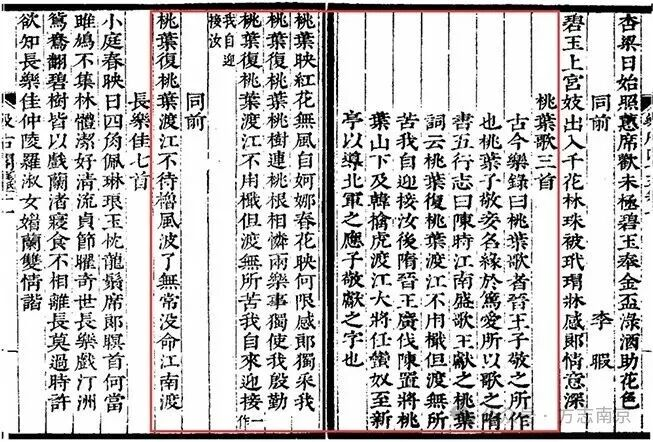 杏梁日始照蕙席歡未極碧玉奉金盃淥酒助花色
同前 李暇
碧玉上宮妓出入千花林珠被玳瑁牀感郎情意深
桃葉歌三首
古今樂錄曰桃葉歌者晉王子敬之所作
也桃葉子敬妾名緣於篤愛所以歌之隋
書五行志曰陳時江南盛歌王獻之桃葉
詞云桃葉復桃葉渡江不用檝但渡無所
苦我自迎接汝後隋晉王廣伐陳置將桃
葉山下及韓擒虎渡江大將任蠻奴至新
亭以導北軍之應子敬獻之字也
桃葉映紅花無風自婀娜春花映何限感郎獨采我
桃葉復桃葉桃樹連桃根相憐兩樂事獨使我殷勤
桃葉復桃葉渡江不用檝但渡無所苦我自來迎接一作
我自迎接汝
同前
桃葉復桃葉渡江不待櫓風波了無常沒命江南渡
長樂佳七首
小庭春映日四角佩琳琅玉枕龍鬚席郎瞑首何當
雎鳩不集林體潔好清流貞節曜奇世長樂戲汀洲
鴛鴦翻碧樹皆以戲蘭渚寢食不相離長莫過時許
欲知長樂佳仲陵羅淑女媌蘭雙情諧
汲古閣
方志南京